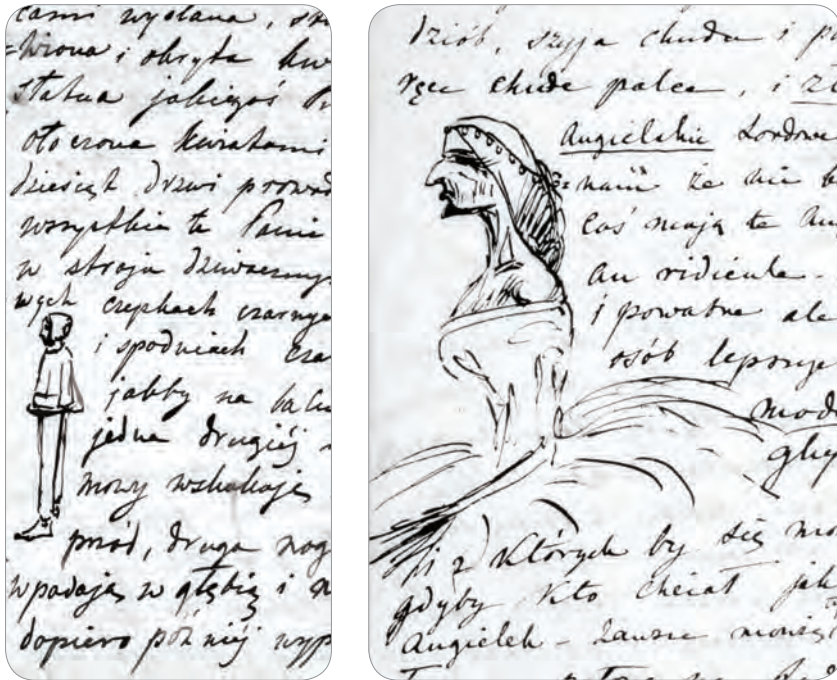 cami wysłana,
i okryta
statua jakiegoś
otoczona kwiatami
dziesięć drzwi prowad
wszystkie te Panie
w stroju dziwaczny
wych czepkach czarnych
i spodniach cza
jakby na balu
jedna drugiéj
mowy wskakują
przód, druga nog
wpadają w głębię i
dopiero później wyp
dziób, szyja chuda i
ręce chude palce, i
Angielskie Lordowe
nam że nie
coś mają te Ang
au ridicule -
i poważne ale
osób lepszego
mod
głup
z których by się mo
gdyby kto chciał jak
angielek - zawsze